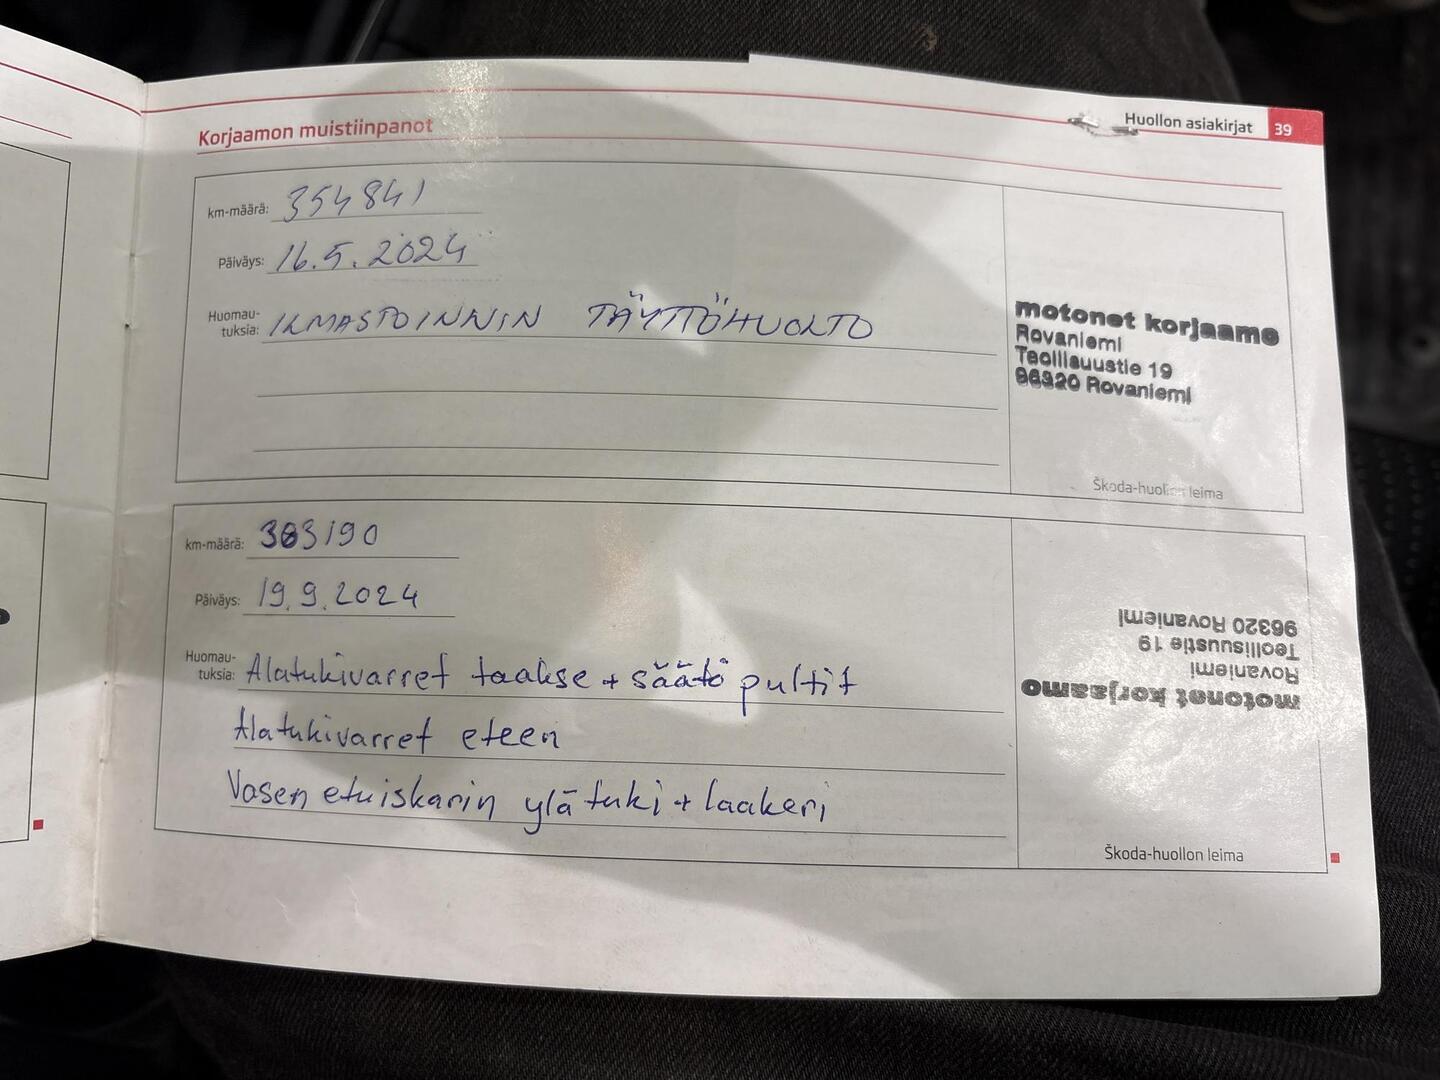 Huollon asiakirjat 39
Korjaamon muistiinpanot
km-määrä: 354841
Päiväys: 16.5.2024
Huomau-
tuksia: ILMASTOINNIN TÄYTTÖHUOLTO
motonet korjaamo
Rovaniemi
Teollisuustie 19
96320 Rovaniemi
Škoda-huollon leima
km-määrä:
Päiväys: 19.9.2024
Huomau-
tuksia: Alatukivarret taakse + säätö pultit
Alatukivarret eteen
Vasen etuiskarin ylätuki + laakeri
motonet korjaamo
Rovaniemi
Teollisuustie 19
96320 Rovaniemi
Škoda-huollon leima